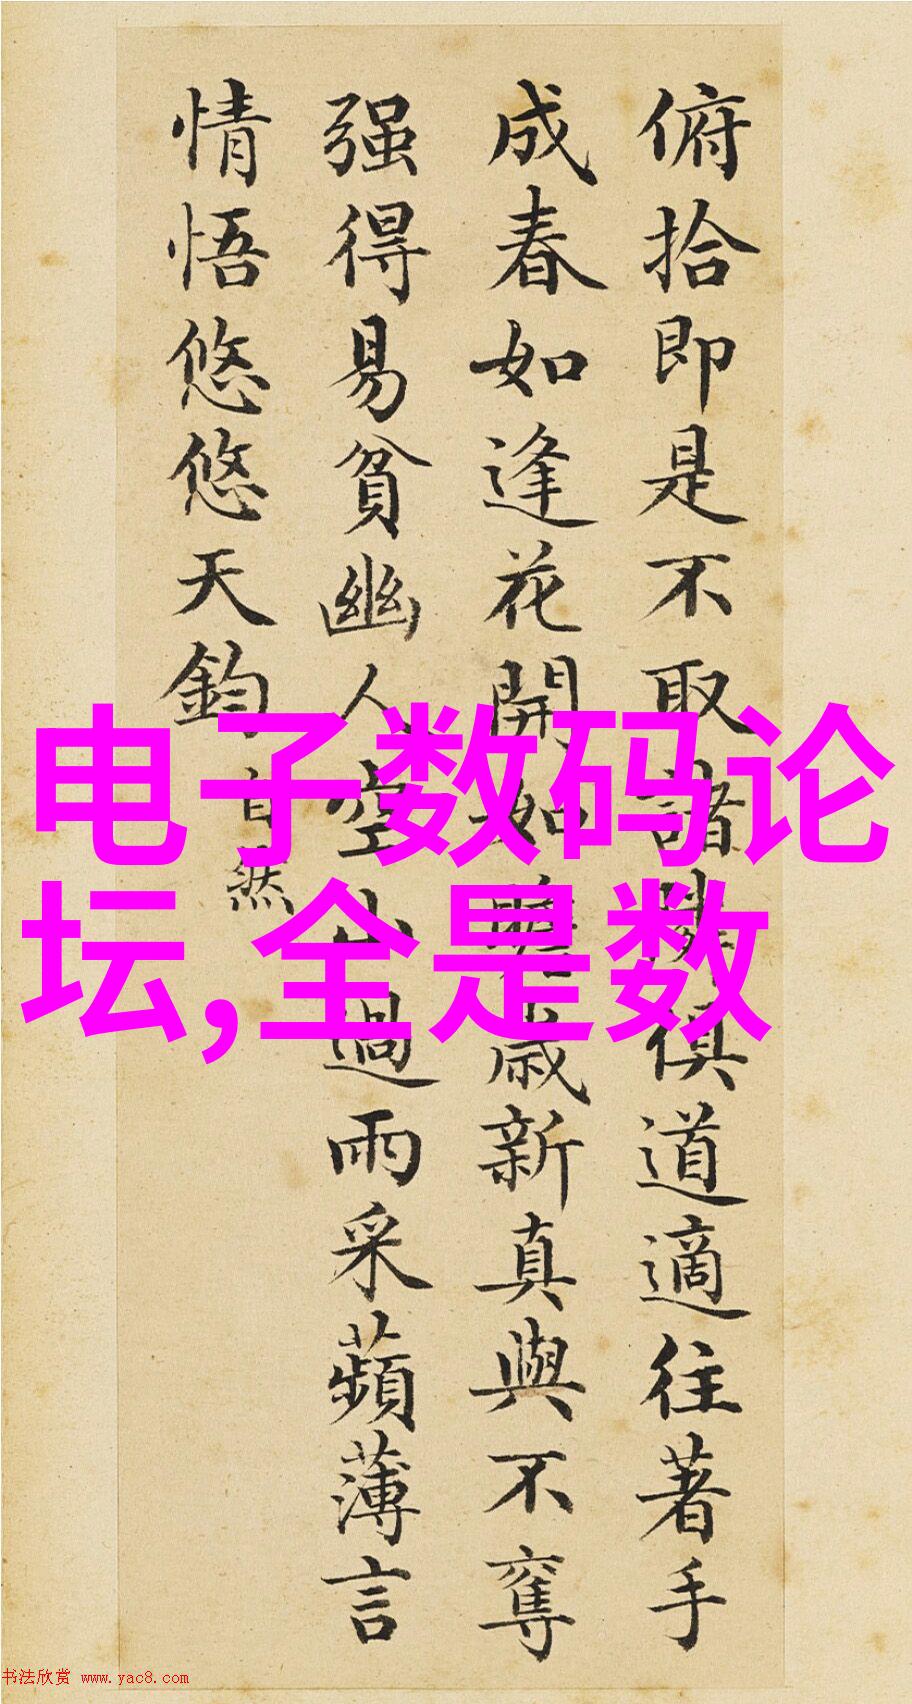 俯拾即是不取諸隣俱道適往著手
成春如逢花開如瞻歳新真與不奪
强得易貧幽人空山過雨采蘋薄言
情悟悠悠天鈞
自然
电子数码论
坛,全是数
书法欣赏 www.yac8.com